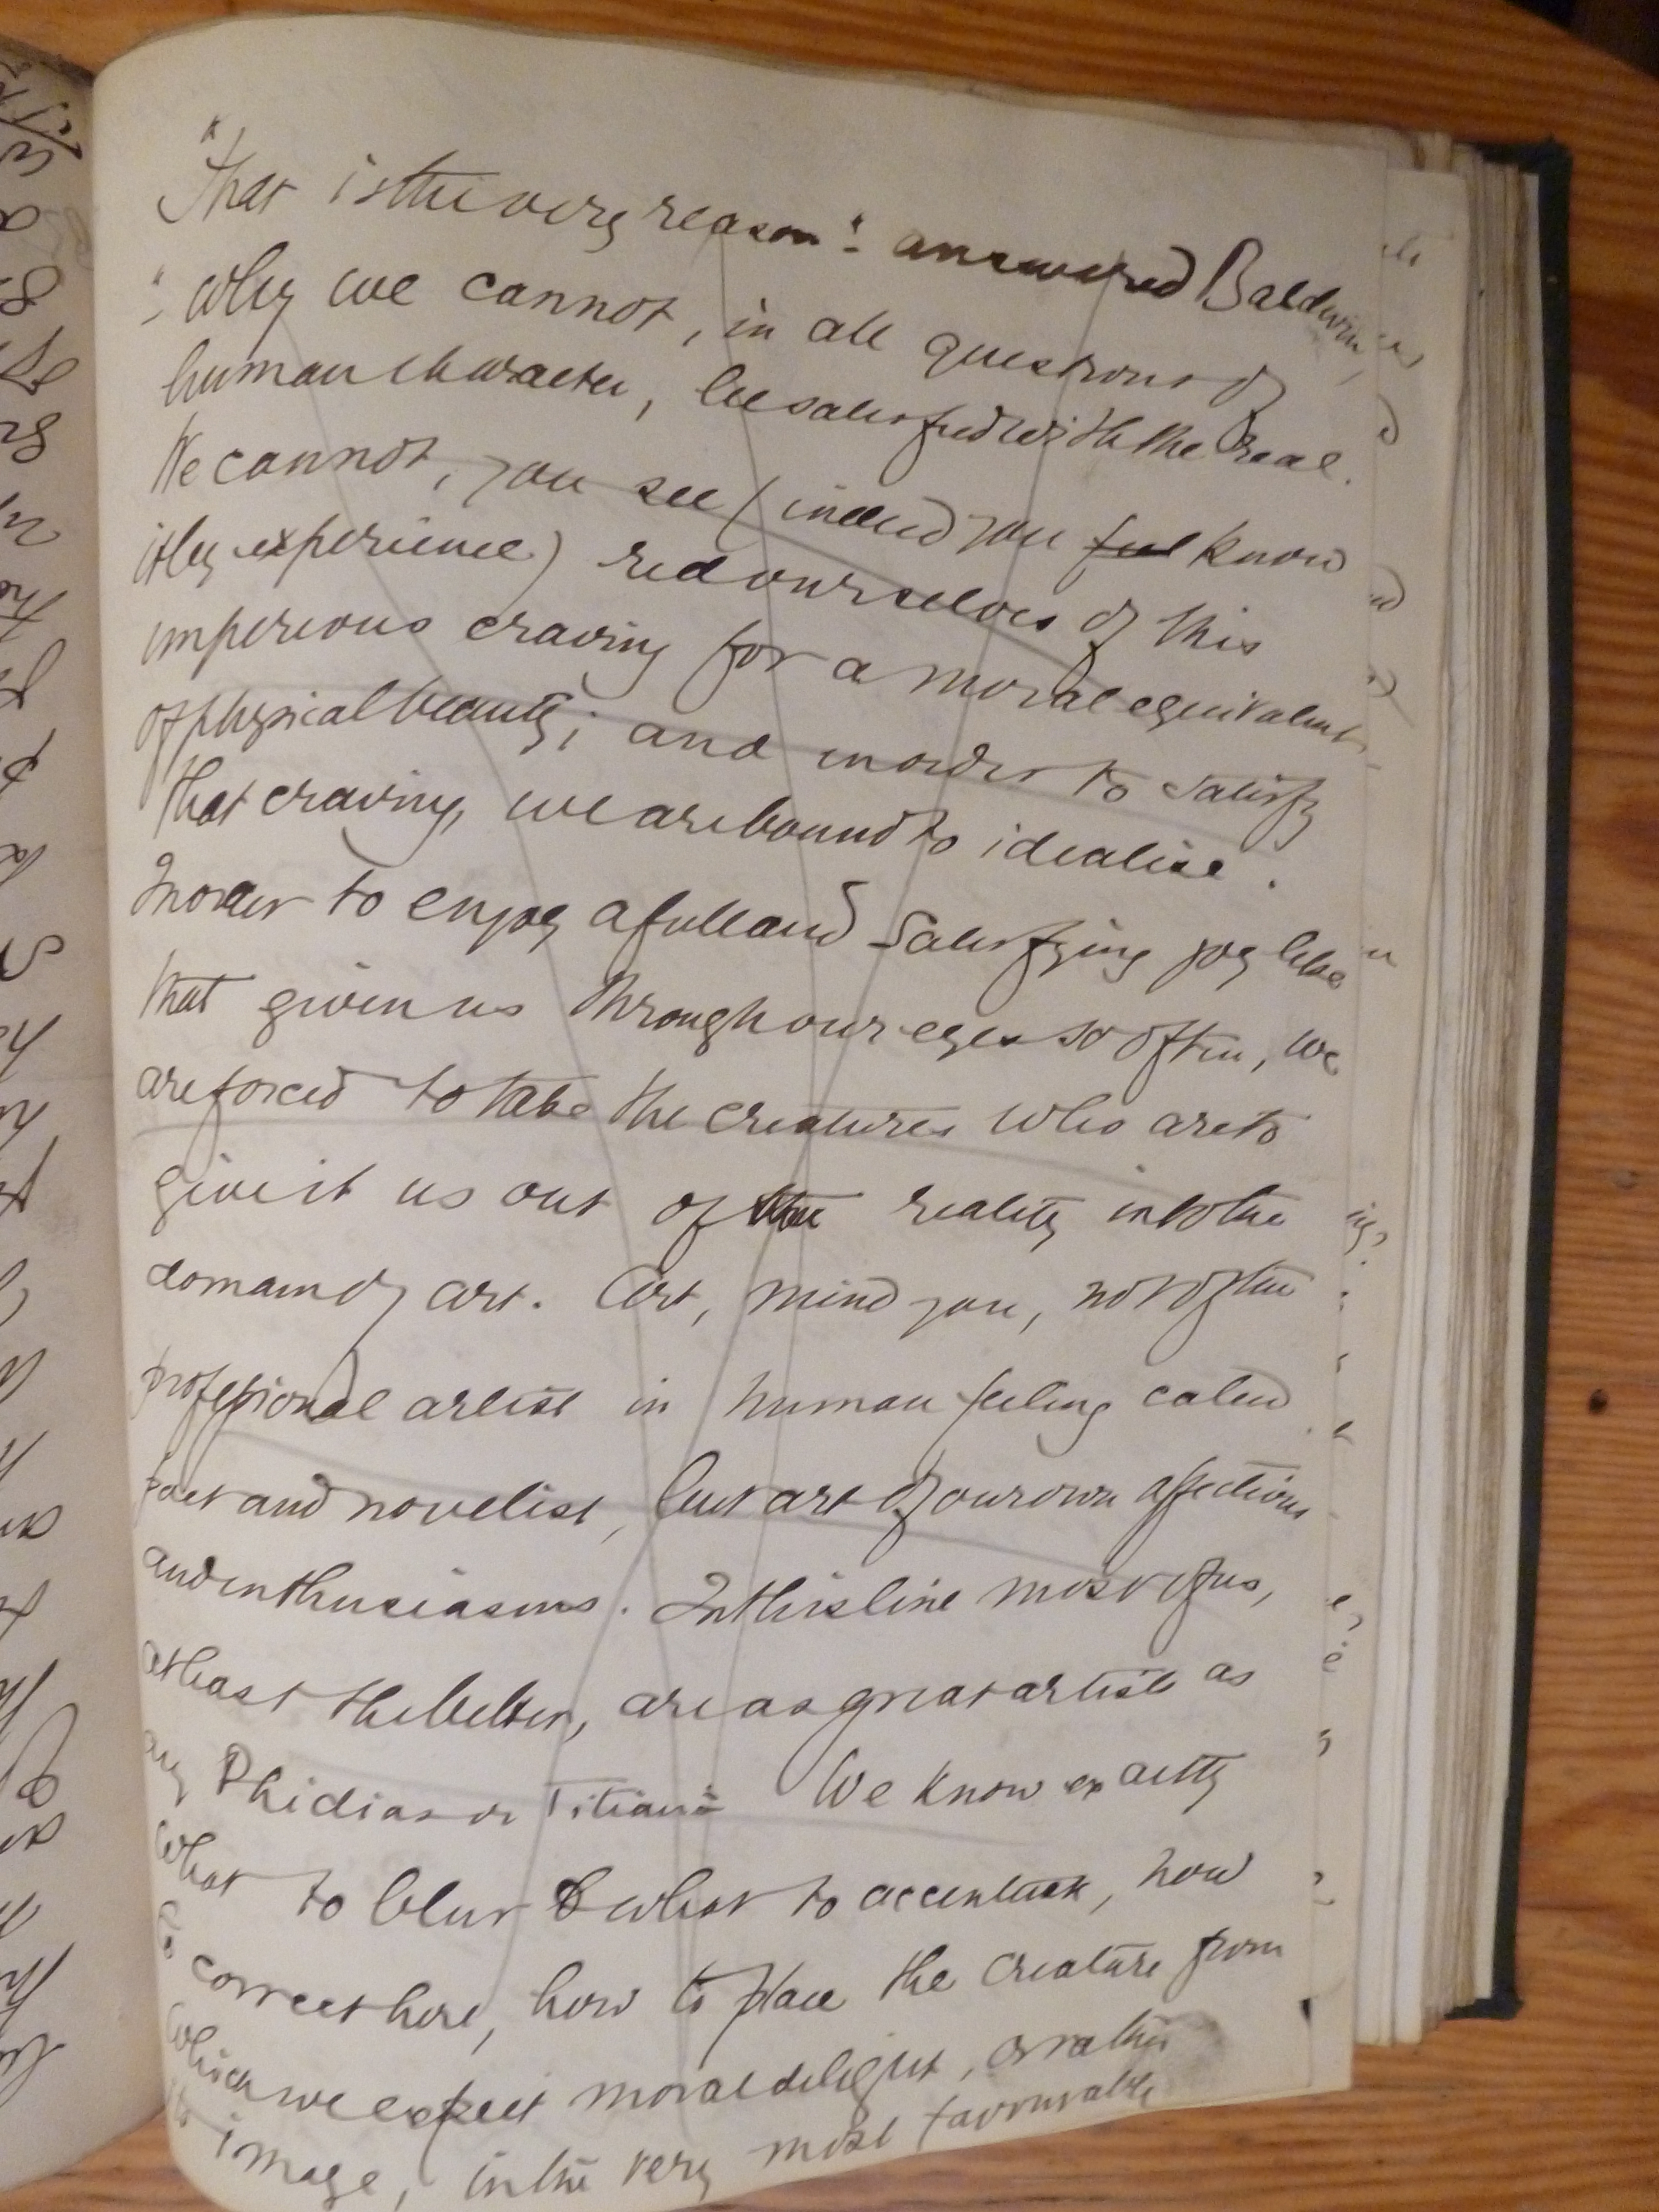 "That is the very reason": answered Baldwin,
"why we cannot, in all questions of
human character, be satisfied with the real.
We cannot, you see (indeed you feel know
it by experience) rid ourselves of this
imperious craving for a moral equivalent
of physical beauty; and in order to satisfy
that craving, we are bound to idealise.
In order to enjoy a full and satisfying joy like
that given us through our eyes so often, we
are forced to take the creatures who are to
give it us out of the reality into the
domain of art. Art, mind you, not of the
professional artist in human feeling called
poet and novelist, but art of our own affections
and enthusiasms. In this line most of us,
at least the better, are as great artists as
any Phidias or Titian: We know exactly
what to blur & what to accentuate, how
to correct here, how to place the creature from
which we expect moral delight, or rather
its image, in the very most favourable